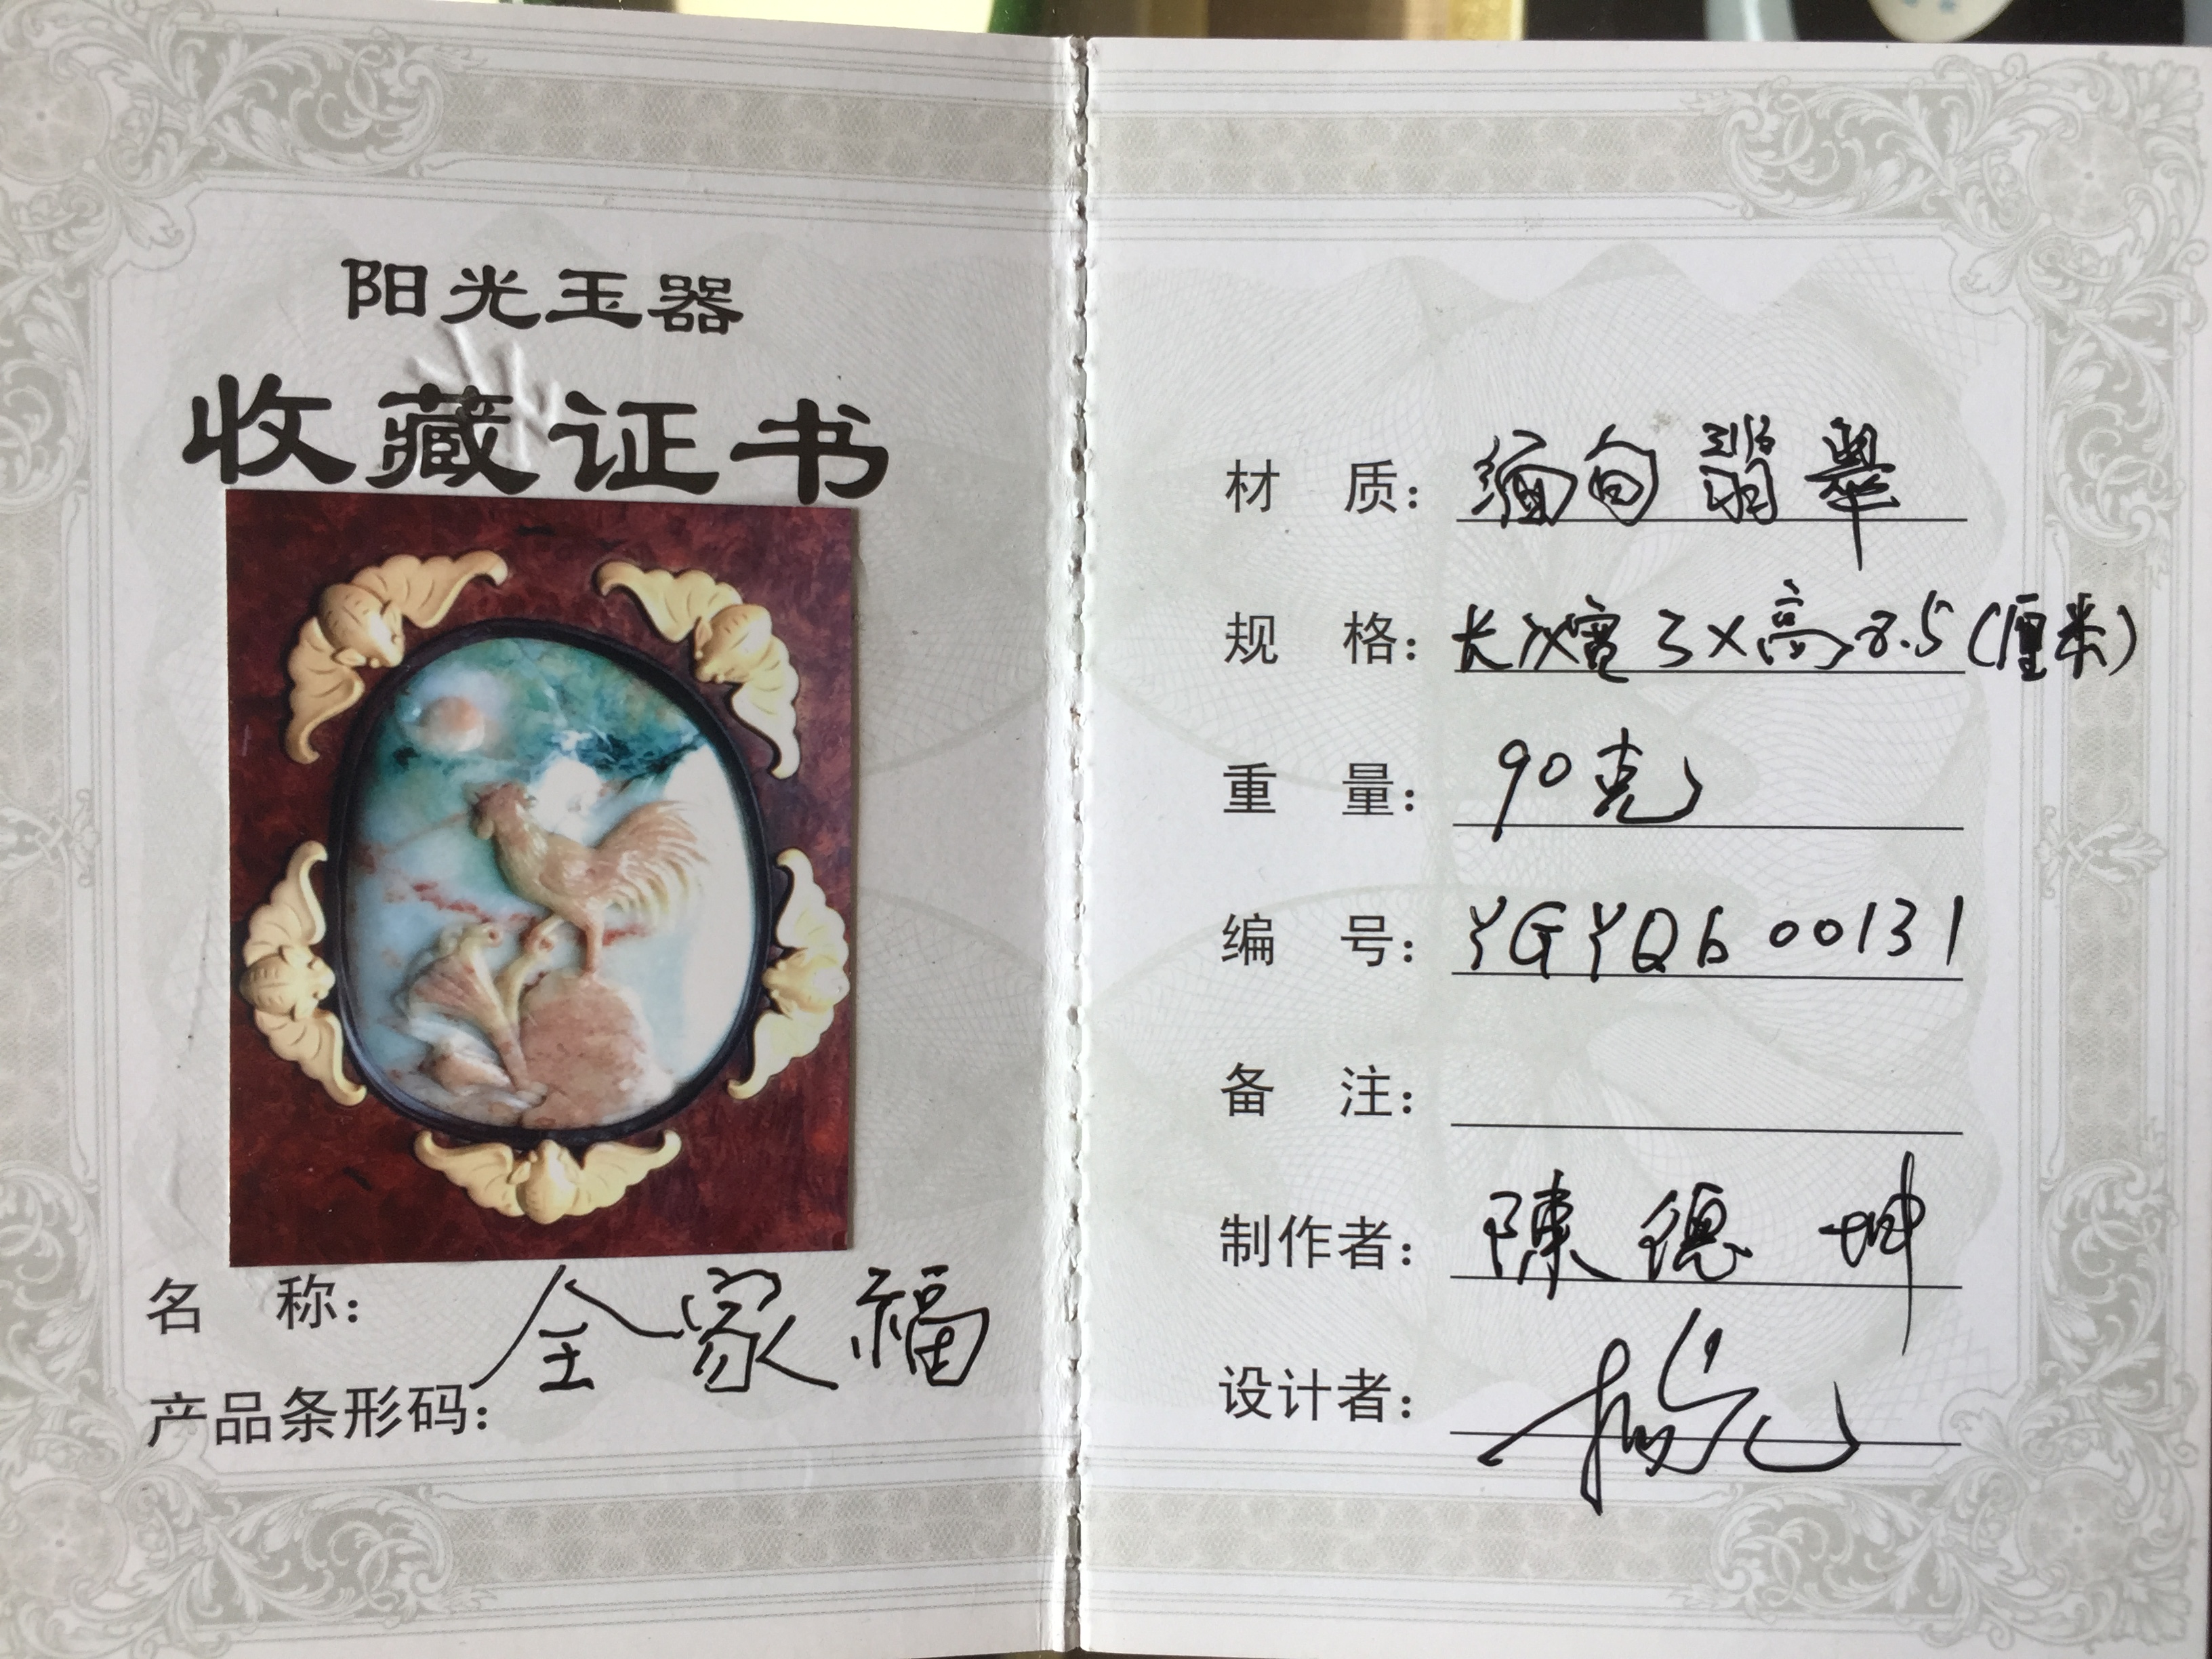 阳光玉器
收藏证书
名 称：全家福
产品条形码：
材 质：缅甸翡翠
规 格：长X宽3X高8.5(厘米)
重 量：90克
编 号：YGYQb00131
备 注：
制作者：陳德坤
设计者：